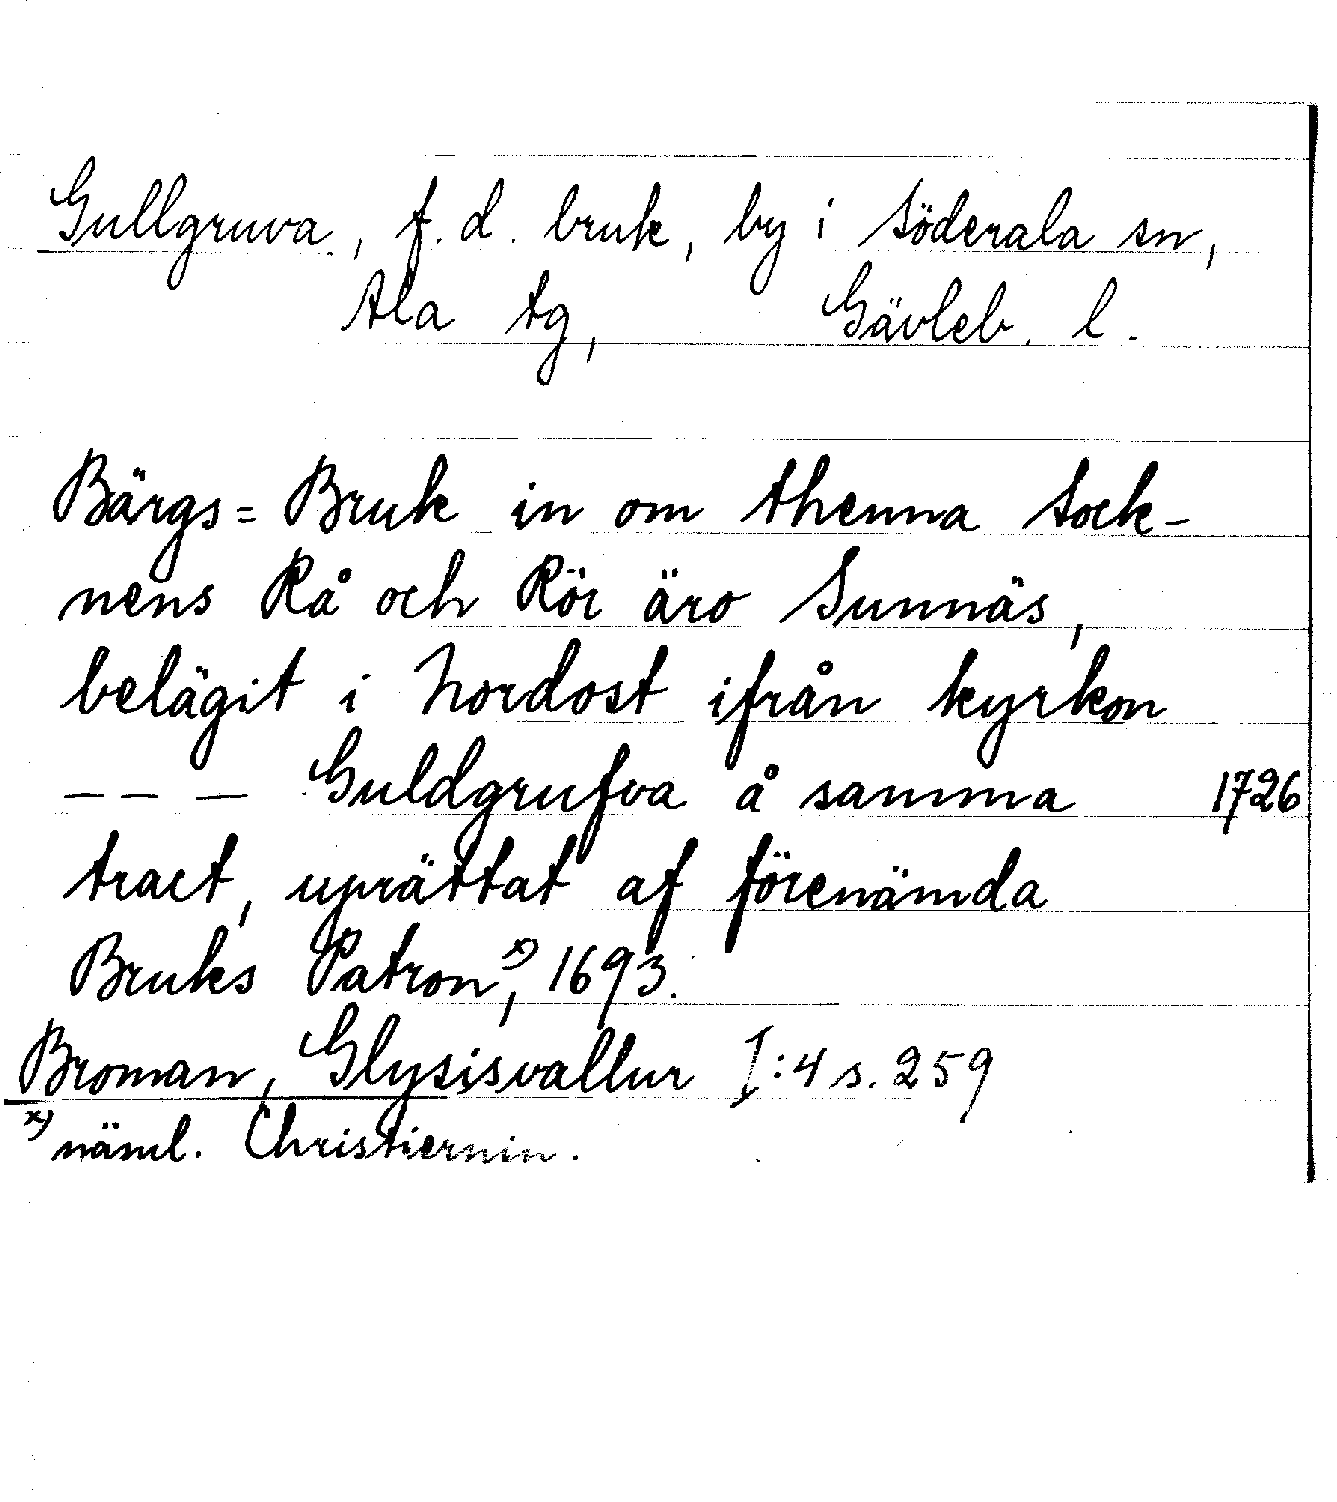 Gullgruva, f. d. bruk, by i Söderala sn,
Ala tg, Gävleb. l.
Bärgs= Bruk in om thenna Sock-
nens Rå och Rör äro Sunnäs,
belägit i Nordost ifrån kyrkon
--- Guldgrufva å samma 1726
tract, uprättat af förenämda
Bruks Patron x), 1693.
Broman, Glysisvallur I:4 s. 259
x) näml. Christiernin.